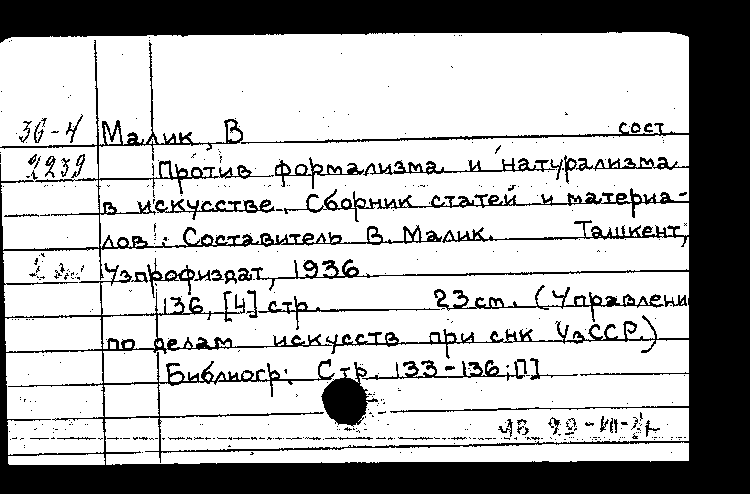 36-4 Малик, В сост.
2239 Против формализма и натурализма
в искусстве. Сборник статей и материа-
лов. Составитель В. Малик. Ташкент,
Узпрофиздат, 1936.
136, [4] стр. 23 см. (Управлени
по делам искусств при снк УзССР.)
Библиогр: Стр. 133-136; []